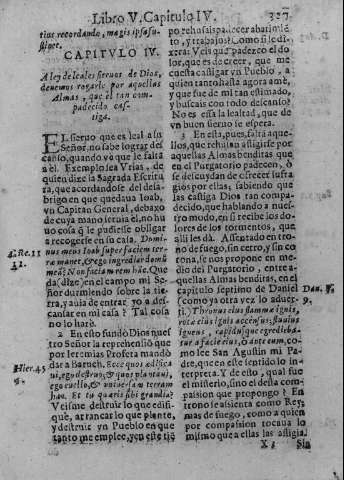 Libro V. Capitulo IV.
327
tius recordando, magis ipsa su-
stinet.
CAPITVLO IV.
A ley de leales siervos de Dios,
devemos rogarle por aquellas
Almas, que el tan com-
padecido cas-
tiga.
EL siervo que es leal a su
Señor, no sabe lograr des-
canso, quando vè que le falta
a el. Exemplo sea Vrias, de
quien dize la Sagrada Escritu-
ra, que acordandose del desa-
brigo en que quedava Ioab,
vn Capitan General, debaxo
de cuya mano servia el, no hu-
vo cosa q̃ le pudiesse obligar
a recogerse en su casa. Domi-
nus meus Ioab super faciem ter-
ra manet, & ego ingrediar domũ
meã? Non faciam rem hãc. Que
da (dize) en el campo mi Se-
ñor durmiendo sobre la tie-
rra, y avia de entrar yo a des-
cansar en mi casa? Tal cosa
no lo harè.
2 En esto fundò Dios nue-
tro Señor la reprehension que
por Ieremias Profeta mandò
dar a Baruch. Ecce quos ædifica-
vi, ego destruo; & quos plantavi,
ego evello, & universam terram
hanc. Et tu quæris tibi grandia?
Veisme destruir lo que edifi-
què, arrancar lo que plantè,
y destruir me empleo, y en este tiẽ
4. Re. 11
11.
Hier. 45
po rehusais padecer abatimiẽ
to, y trabajos? Como si le di-
xera: Veis que padezco el do-
lor, que es de creer, que me
cuesta castigar vn Pueblo, a
quien tanto hasta agora amè,
y que fue de mi tan estimado,
y buscais con todo descanso?
No es essa la lealtad, que de
vn buen siervo se espera.
3 En esta, pues, falta aque-
llos, que rehusan afligirse por
aquellas Almas benditas que
en el Purgatorio padecen, ò
se descuydan de ofrecer sufra
gios por ellas; sabiendo que
las castiga Dios tan compa-
decido, que hablando a nues-
tro modo, en si recibe los do-
lores de los tormentos, que
alli les dà. Assentado en tro-
no de fuego, sin cerro, y sin co
rona, se nos propone en me-
dio del Purgatorio, entre a-
quellas Almas benditas, en el
capitulo septimo de Daniel
(como ya otra vez lo adver-
ti.) Thronus eius flammæ ignis,
rotæ eius ignis accensus; fluvius
igneus, rapidusque egrediebatur
a facie eius, ò ante eum, co-
mo lee San Agustin mi Pa-
dre, que en este sentido lo in-
terpreta. Y de esto, qual fue
el misterio, sino el desta com-
passion que propongo? En
trono se assienta como Rey;
mas de fuego, como a quien
por compassion tocava lo
mismo que a ellas las afligia.
Dan. 7.
9.
X 4
Sin